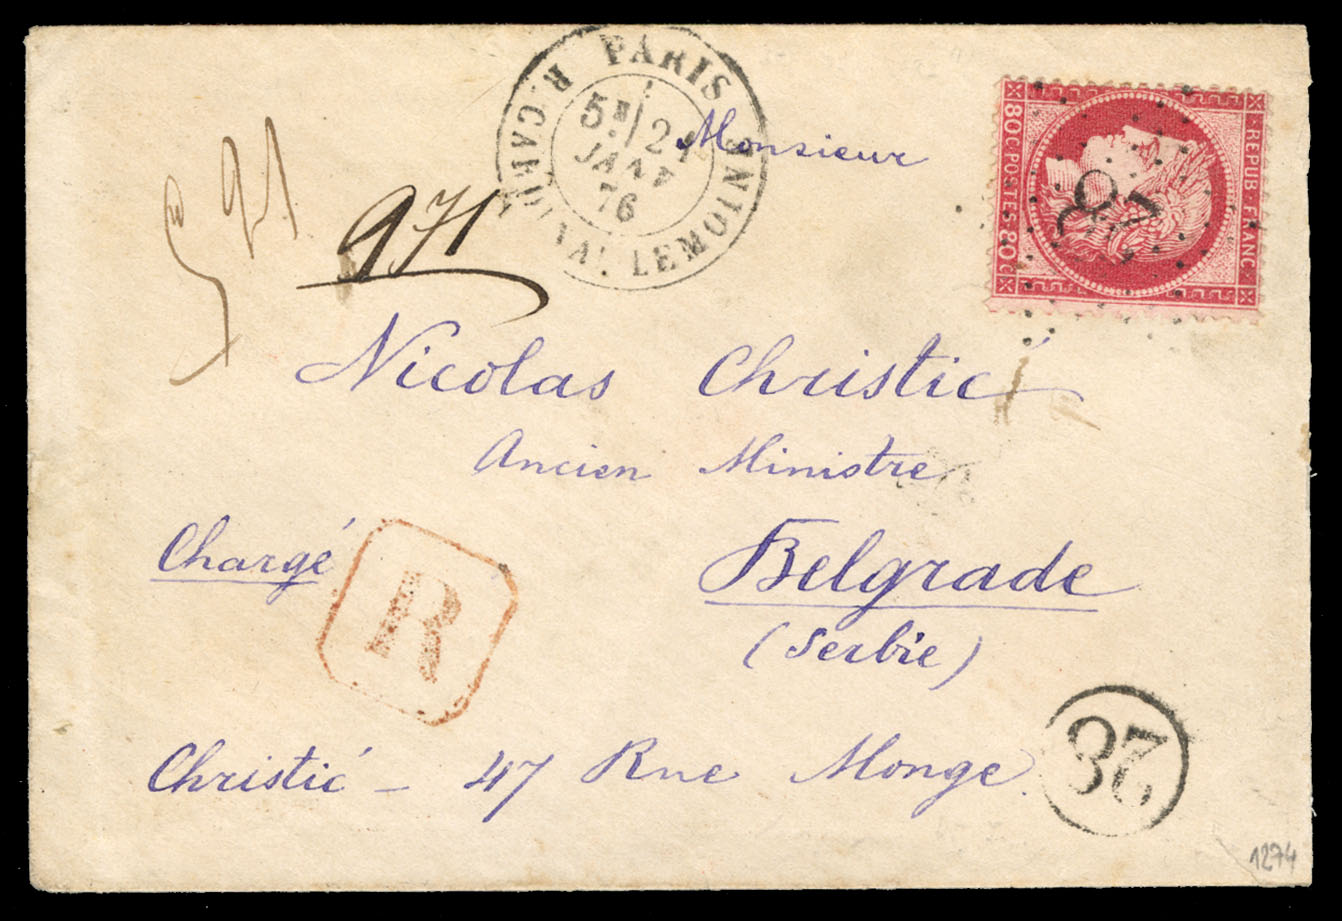 PARIS
R. CARDINAL LEMOINE
5E / 21
JANV
76
REPUB. FRANC.
80C. POSTES. 80C.
Monsieur
971
Nicolas Christić
Ancien Ministre
Chargé
R
Belgrade
(Serbie)
Christić - 47 Rue Monge
1274